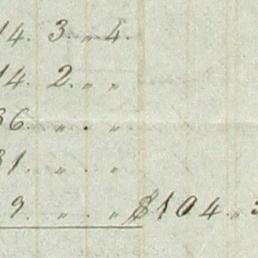 14. 3. „ 4.
14. 2. „ „
36. „ . „
31. „ . „
9. „ . „ $104. „